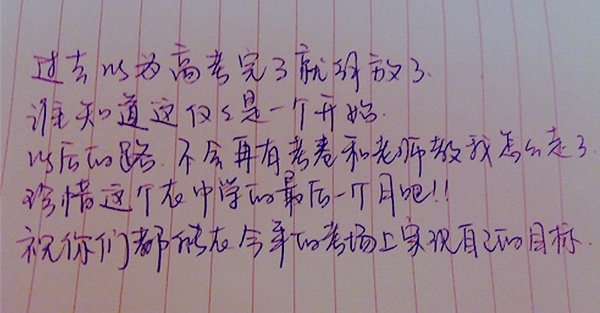 过去以为高考完了就解放了.
谁知道这仅仅是一个开始.
以后的路.不会再有考卷和老师教我怎么走了.
珍惜这个在中学的最后一个月吧!!
祝你们都能在今年的考场上实现自己的目标.